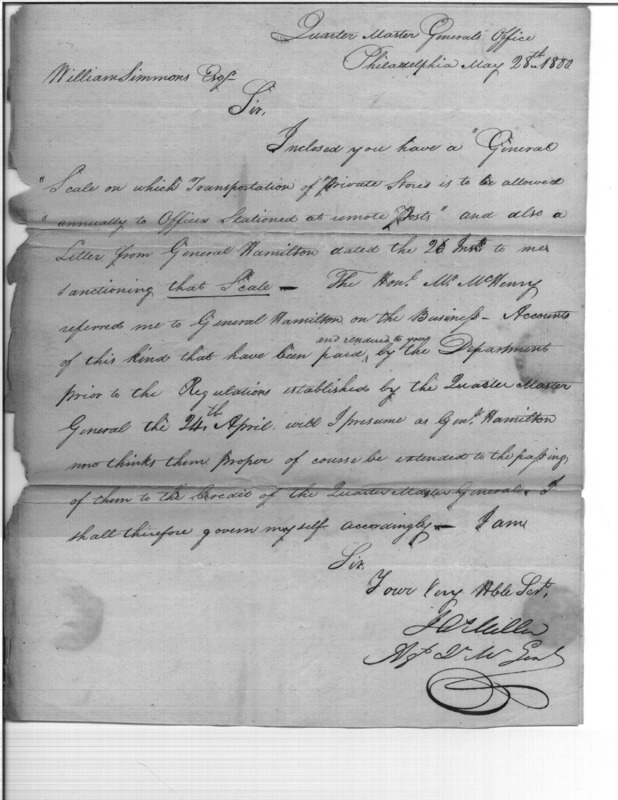 Quarter Master Generals Office
Philadelphia May 28th 1800
William Simmons Esqr
Sir,
Inclosed you have a "General
"Scale on which Transportation of Private Stores is to be allowed
"annually to Officers Stationed at remote Posts" and also a
Letter from General Hamilton dated the 26 Inst. to me
sanctioning that Scale — The Honl. Mr. McHenry
referred me to General Hamilton on the Business — Accounts
and rendered to you
of this kind that have been paid, by the Department
prior to the Regulations established by the Quarter Master
General the 24th April. will I presume as Genl. Hamilton
now thinks them proper of course be extended to the passing
of them to the Credit of the Quarter Master General. I
shall therefore govern myself accordingly — I am
Sir
Your Very Hble Sert.
Jno Miller
Agt Qr Mr Genl